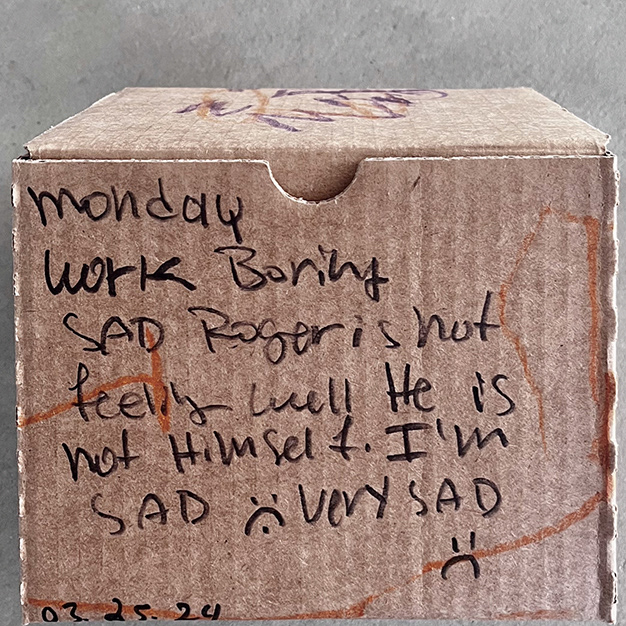 monday
work Boring
SAD Roger is not
feeling well He is
not Himself. I'm
SAD ☹ very SAD
☹
03.25.24